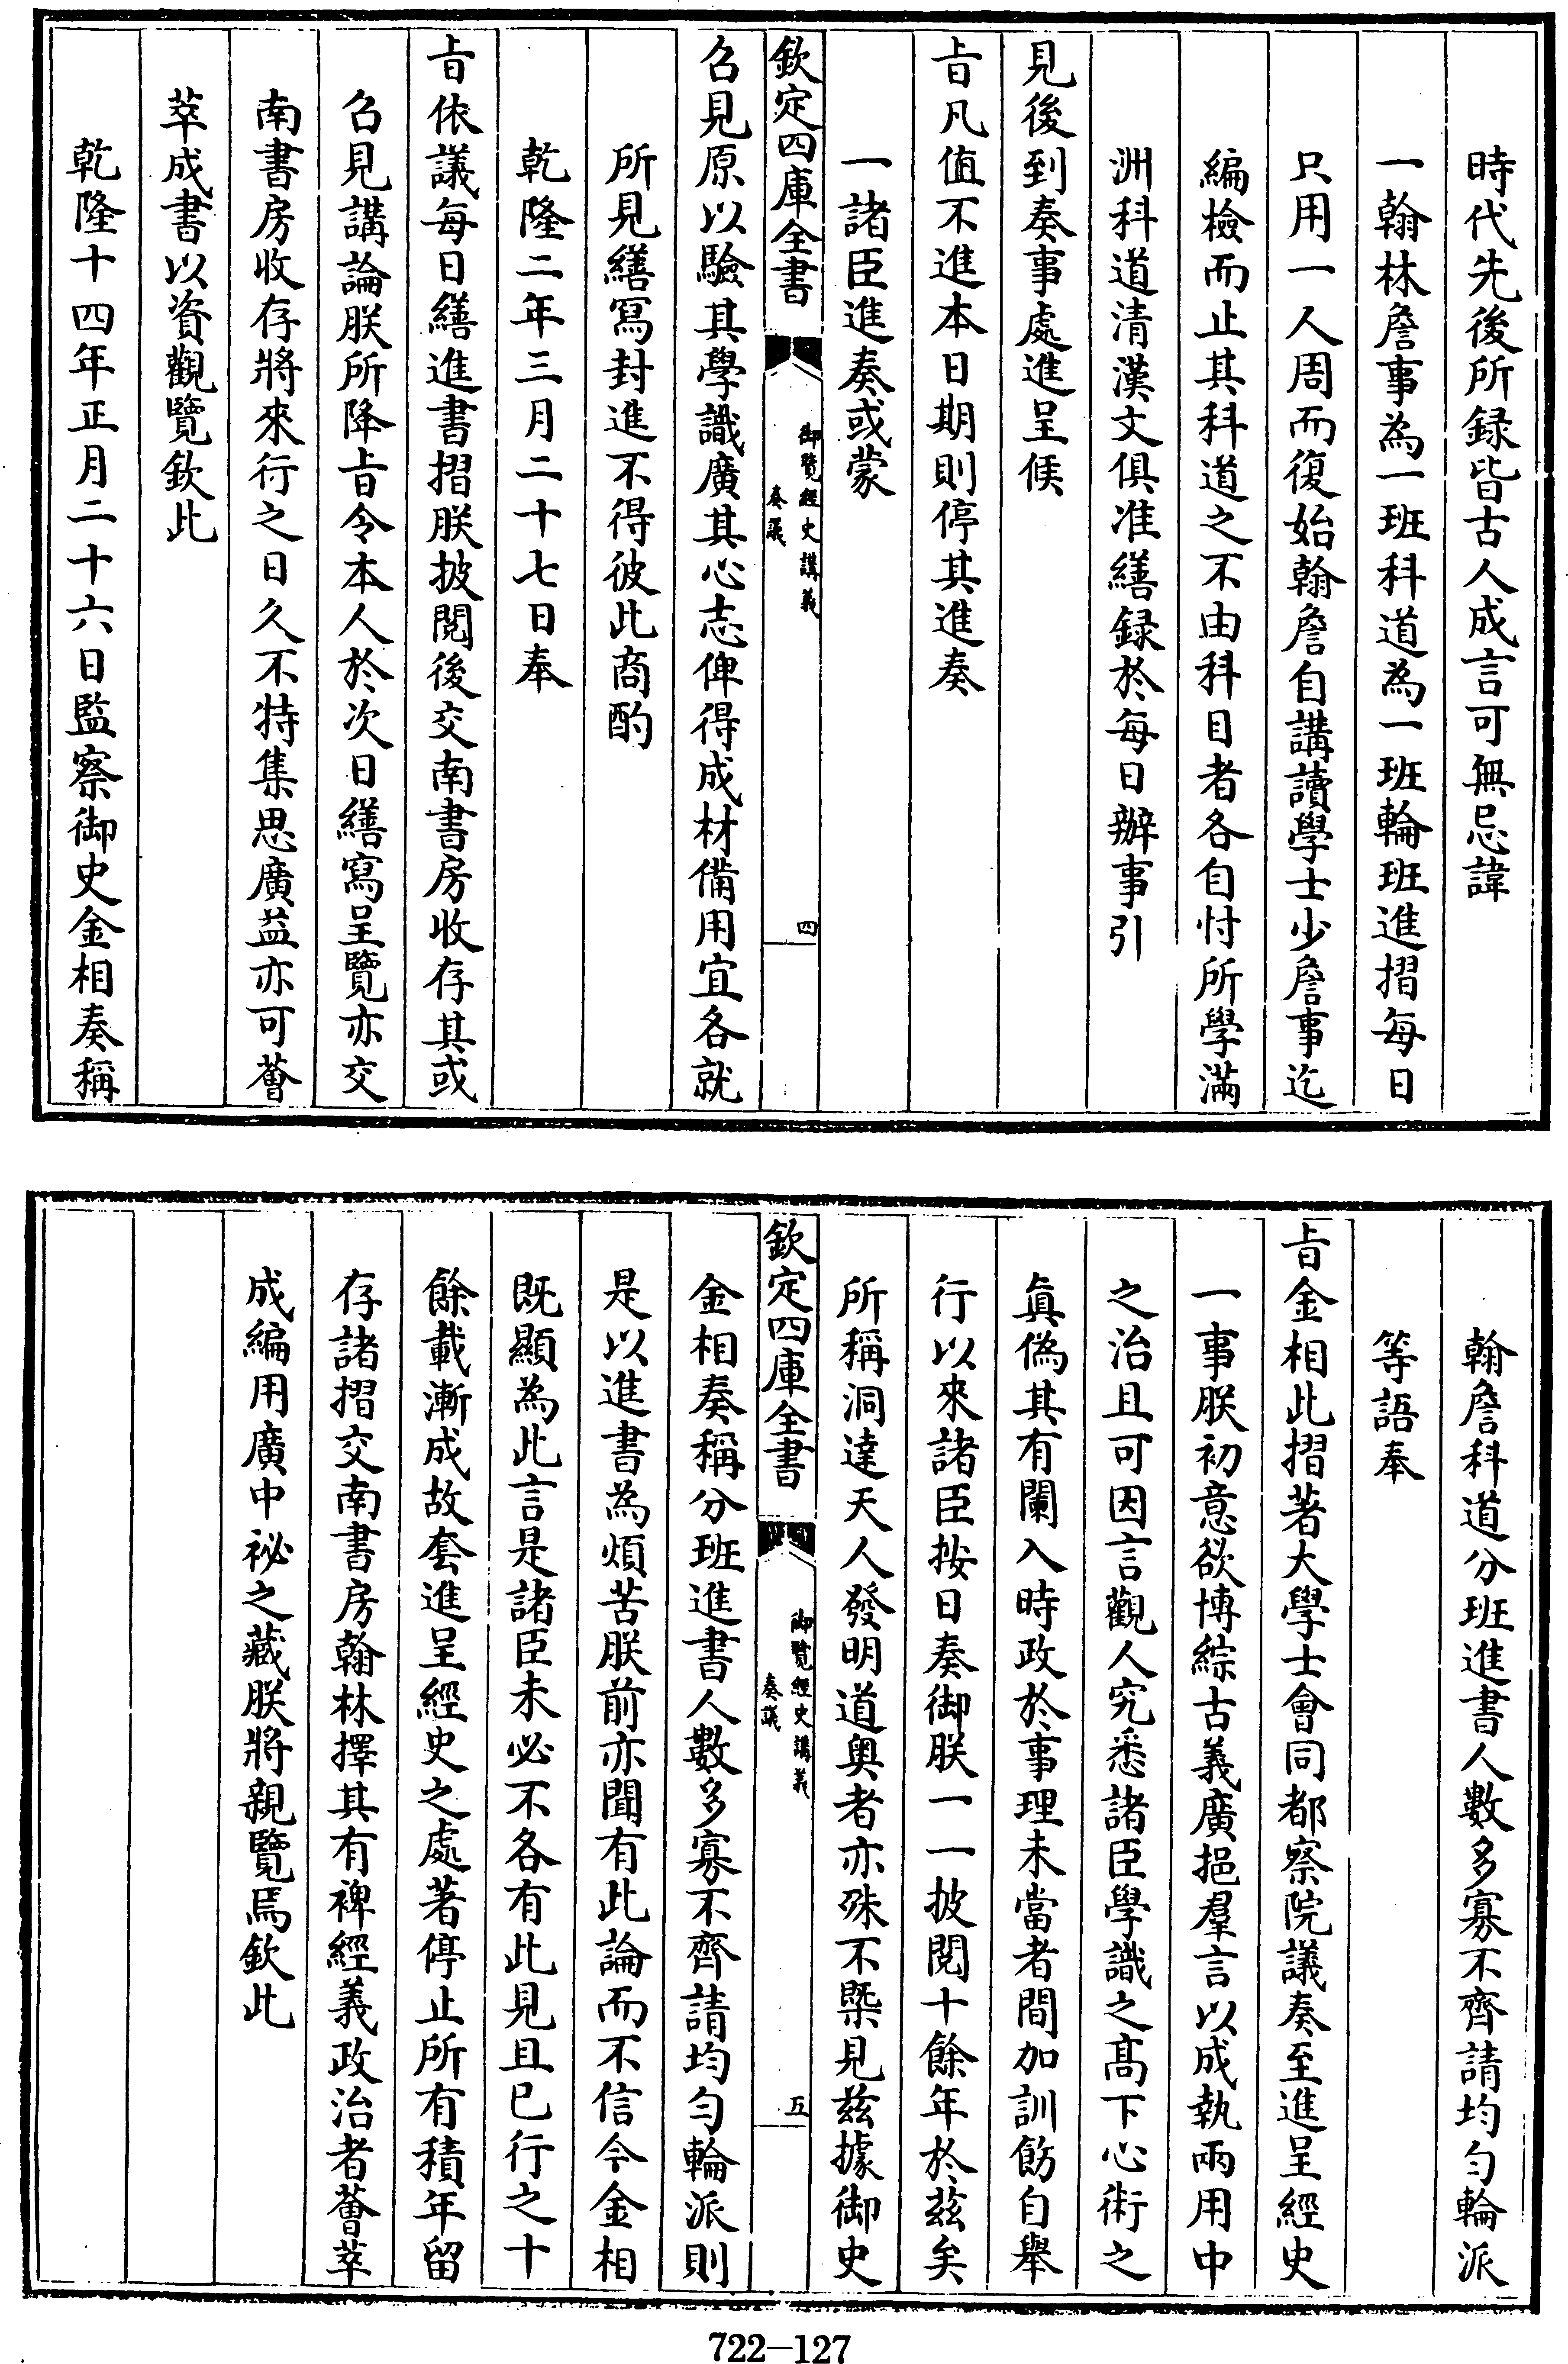 時代先後所録皆古人成言可無忌諱
一翰林詹事為一班科道為一班輪班進摺每日
只用一人周而復始翰詹自講讀學士少詹事迄
編檢而止其科道之不由科目者各自忖所學滿
洲科道清漢文俱准繕録於每日辦事引
見後到奏事處進呈候
㫖凡值不進本日期則停其進奏
一諸臣進奏或蒙
欽定四庫全書
御覽經史講義
奏議
四
召見原以驗其學識廣其心志俾得成材備用宜各就
所見繕寫封進不得彼此商酌
乾隆二年三月二十七日奉
㫖依議每日繕進書摺朕披閱後交南書房收存其或
召見講論朕所降㫖令本人於次日繕寫呈覽亦交
南書房收存將來行之日久不特集思廣益亦可薈
萃成書以資觀覽欽此
乾隆十四年正月二十六日監察御史金相奏稱
翰詹科道分班進書人數多寡不齊請均勻輪派
等語奉
㫖金相此摺著大學士會同都察院議奏至進呈經史
一事朕初意欲博綜古義廣挹羣言以成執兩用中
之治且可因言觀人究悉諸臣學識之髙下心術之
眞偽其有闌入時政於事理未當者間加訓飭自舉
行以來諸臣按日奏御朕一一披閱十餘年於茲矣
所稱洞達天人發明道奥者亦殊不槩見茲據御史
欽定四庫全書
御覽經史講義
奏議
五
金相奏稱分班進書人數多寡不齊請均勻輪派則
是以進書為煩苦朕前亦聞有此論而不信今金相
既顯為此言是諸臣未必不各有此見且已行之十
餘載漸成故套進呈經史之處著停止所有積年留
存諸摺交南書房翰林擇其有裨經義政治者薈萃
成編用廣中祕之藏朕將親覽焉欽此
722—127